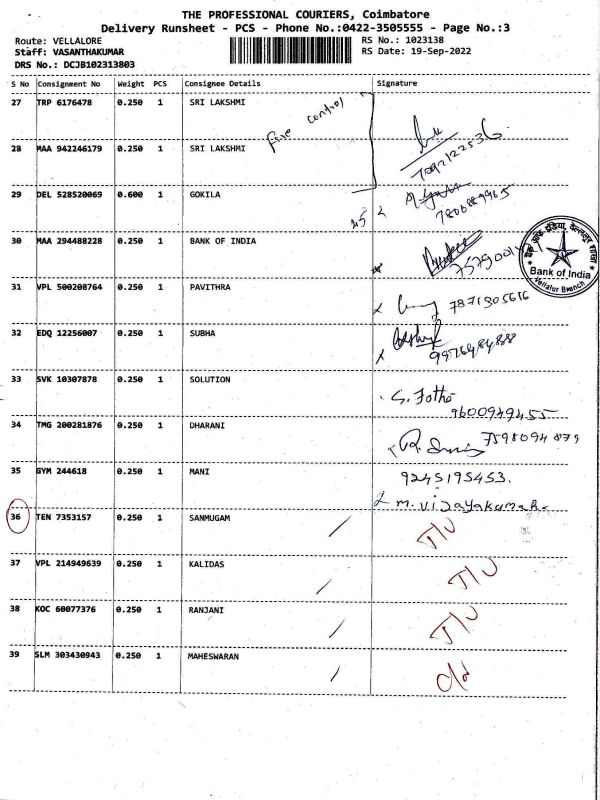 THE PROFESSIONAL COURIERS, Coimbatore
Delivery Runsheet - PCS - Phone No.:0422-3505555 - Page No.:3
Route: VELLALORE
RS No.: 1023138
Staff: VASANTHAKUMAR
RS Date: 19-Sep-2022
DRS No.: DCJB102313803
S No Consignment No Weight PCS Consignee Details Signature
27 TRP 6176478 0.250 1 SRI LAKSHMI
Fire control
28 MAA 942246179 0.250 1 SRI LAKSHMI
7092122536
29 DEL 528520069 0.600 1 GOKILA
7806889965
30 MAA 294488228 0.250 1 BANK OF INDIA
Bank of India
Vellalur Branch
31 VPL 500208764 0.250 1 PAVITHRA
7871305616
32 EDQ 12256007 0.250 1 SUBHA
33 SVK 10307878 0.250 1 SOLUTION
9600949455
34 TMG 200281876 0.250 1 DHARANI
7598094879
35 GYM 244618 0.250 1 MANI
9245195453.
M. Vijayakumar
36 TEN 7353157 0.250 1 SANMUGAM
37 VPL 214949639 0.250 1 KALIDAS
38 KOC 60077376 0.250 1 RANJANI
39 SLM 303430943 0.250 1 MAHESWARAN